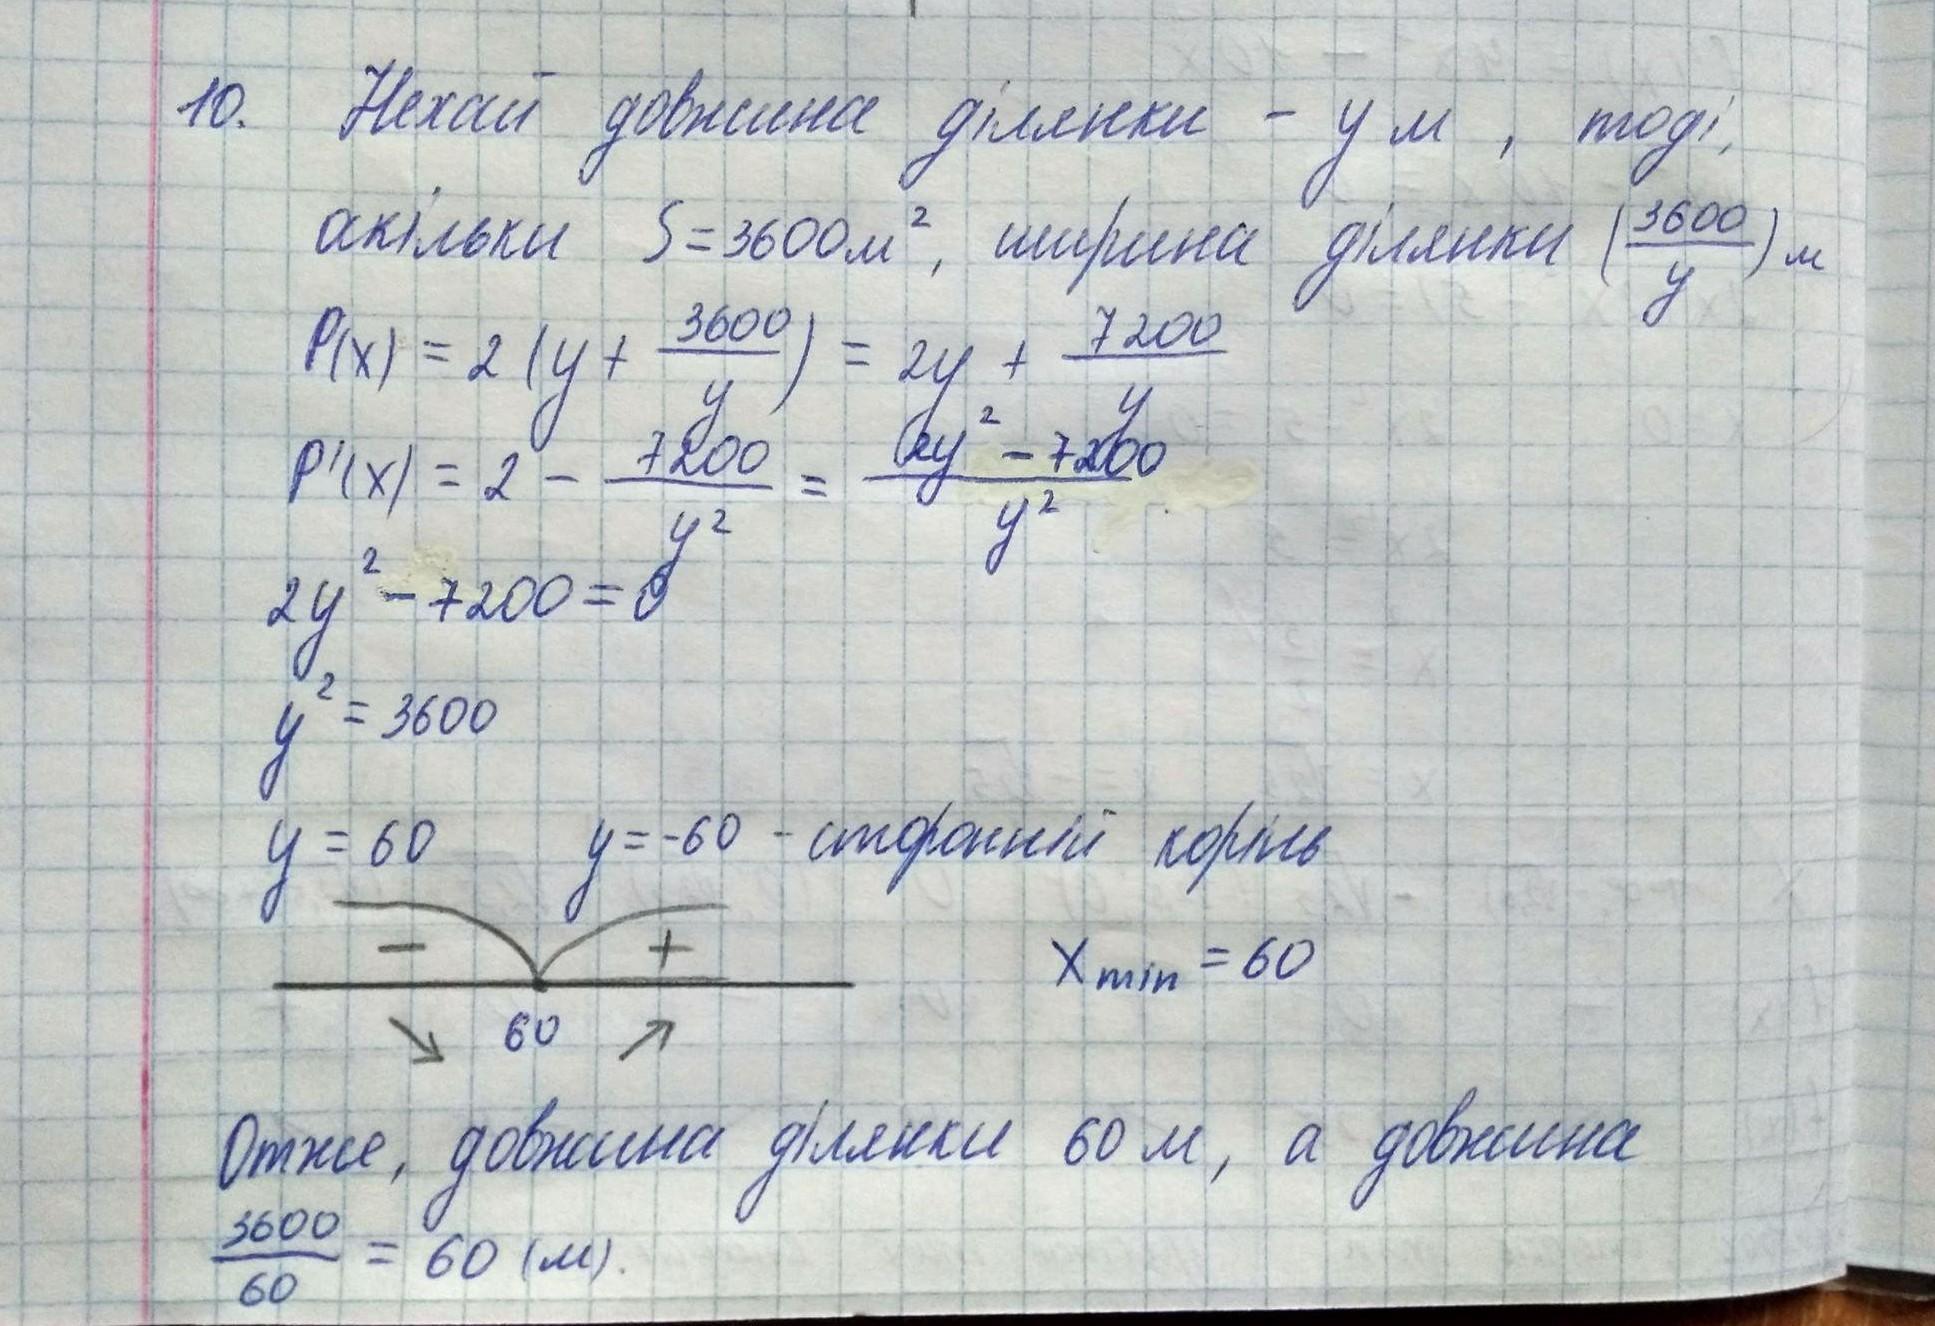 10. Нехай довжина ділянки - y м, тоді,
акільки S=3600м², ширина ділянки (3600/y) м
P(x) = 2(y + 3600/y) = 2y + 7200/y
P'(x) = 2 - 7200/y² = (2y² - 7200)/y²
2y² - 7200 = 0
y² = 3600
y = 60 y = -60 - сторонній корінь
- +
x min = 60
60
Отже, довжина ділянки 60 м, а довжина
3600/60 = 60 (м).